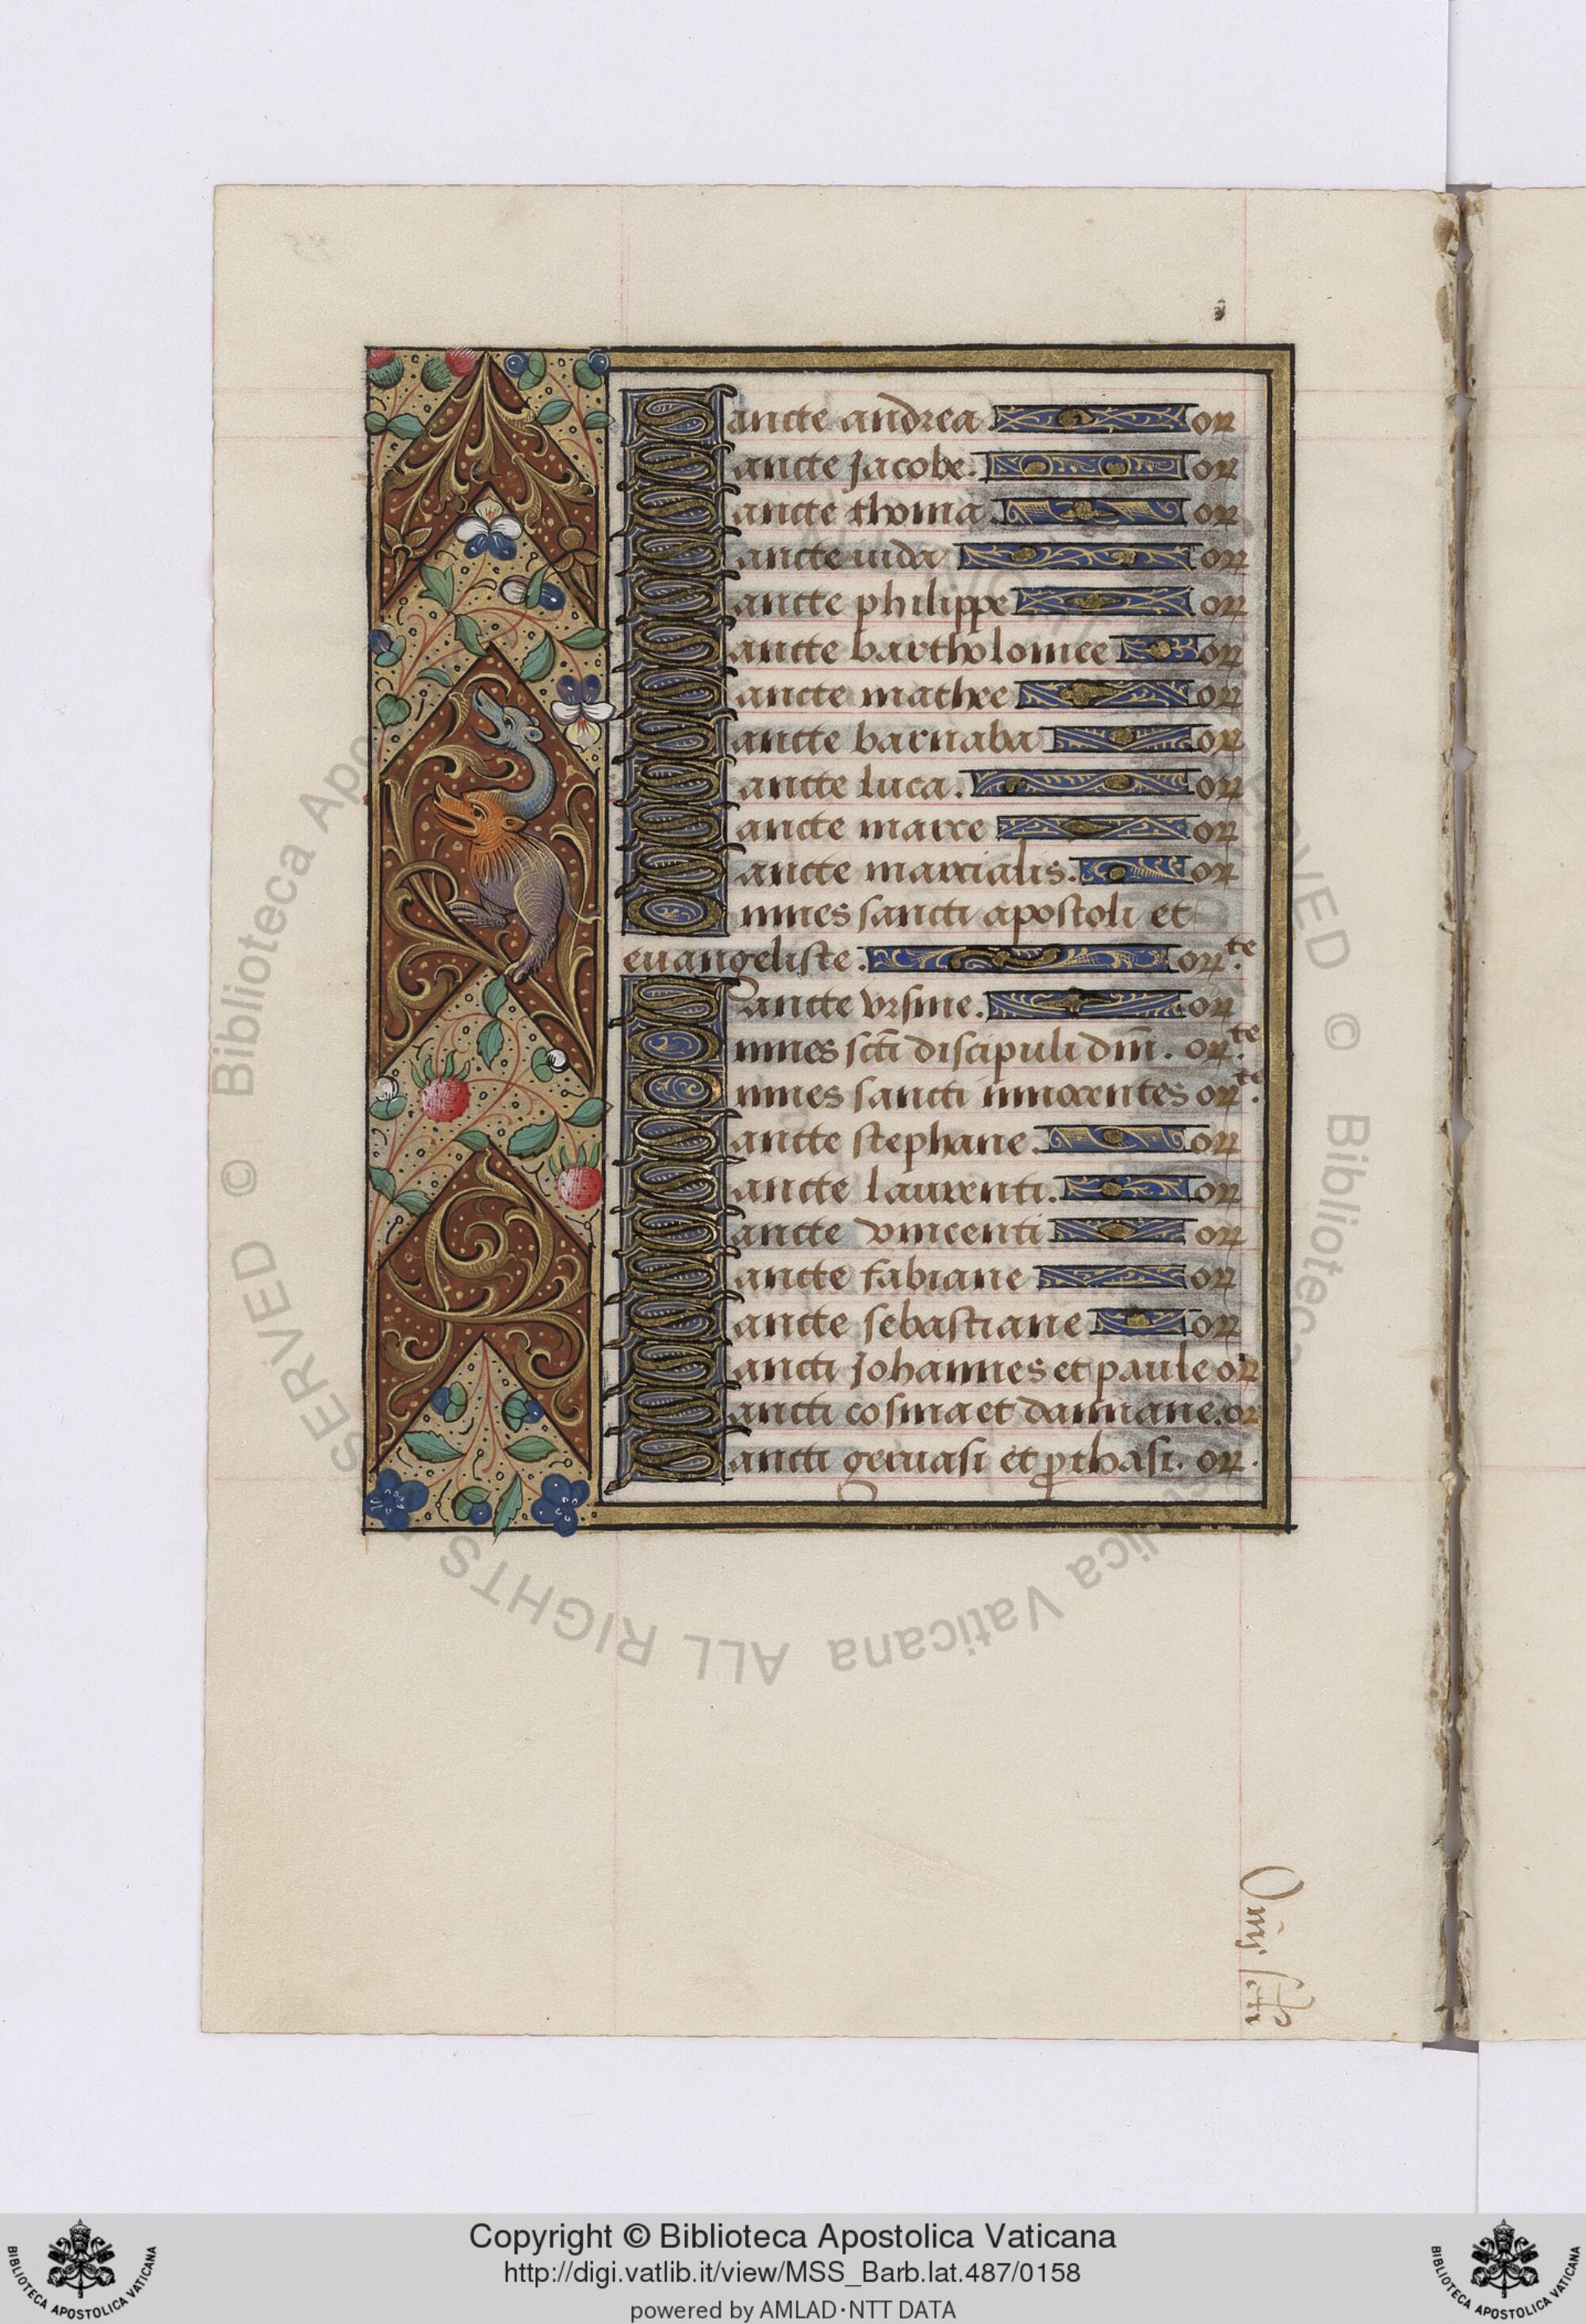 Sancte andrea. or
Sancte Jacobe. or
Sancte thoma. or
Sancte iuda or
Sancte philippe or
Sancte bartholomee or
Sancte mathee or
Sancte barnaba or
Sancte luca. or
Sancte marce or
Sancte marcialis. or
Omnes sancti apostoli et
euangeliste. or te.
Sancte vrsine. or
Omnes scti discipuli dni. or te.
Omnes sancti innocentes or te.
Sancte stephane. or
Sancte laurenti. or
Sancte vincenti or
Sancte fabiane or
Sancte sebastiane or
Sancti Johannes et paule or
Sancti cosma et damiane. or
Sancti geruasi et pthasi. or.
Copyright © Biblioteca Apostolica Vaticana
http://digi.vatlib.it/view/MSS_Barb.lat.487/0158
powered by AMLAD·NTT DATA
BIBLIOTECA APOSTOLICA VATICANA
BIBLIOTECA APOSTOLICA VATICANA